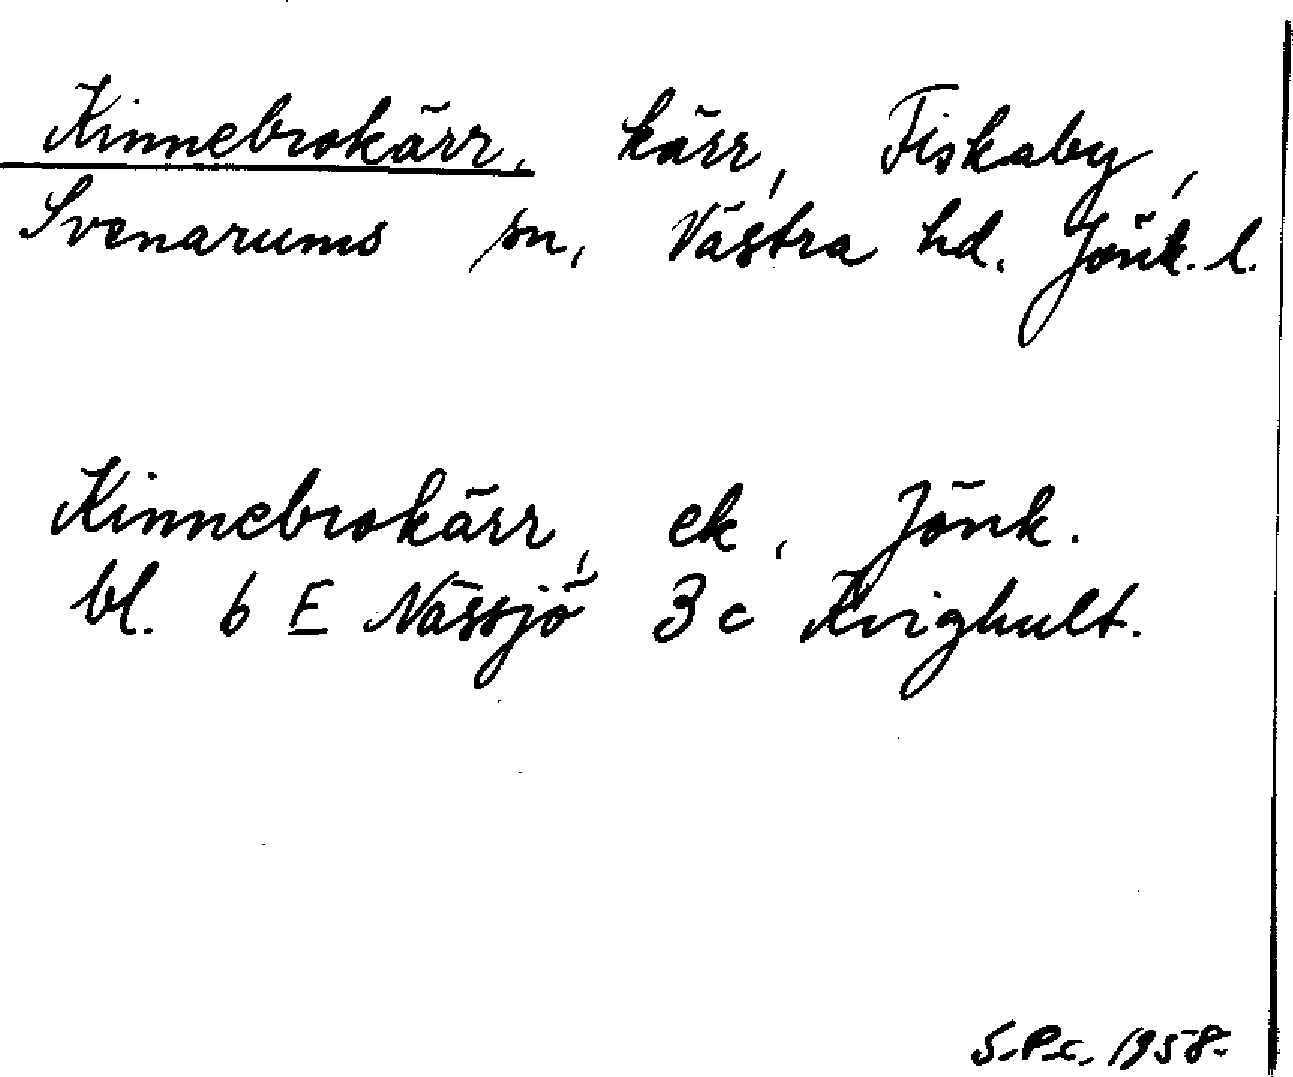 Kinnebrokärr, kärr, Fiskaby,
Svenarums sn, Västra hd. Jönk. l.
Kinnebrokärr, ek, Jönk.
bl. 6 E Nässjö 3 c Kvighult.
S.P.c. 1958.